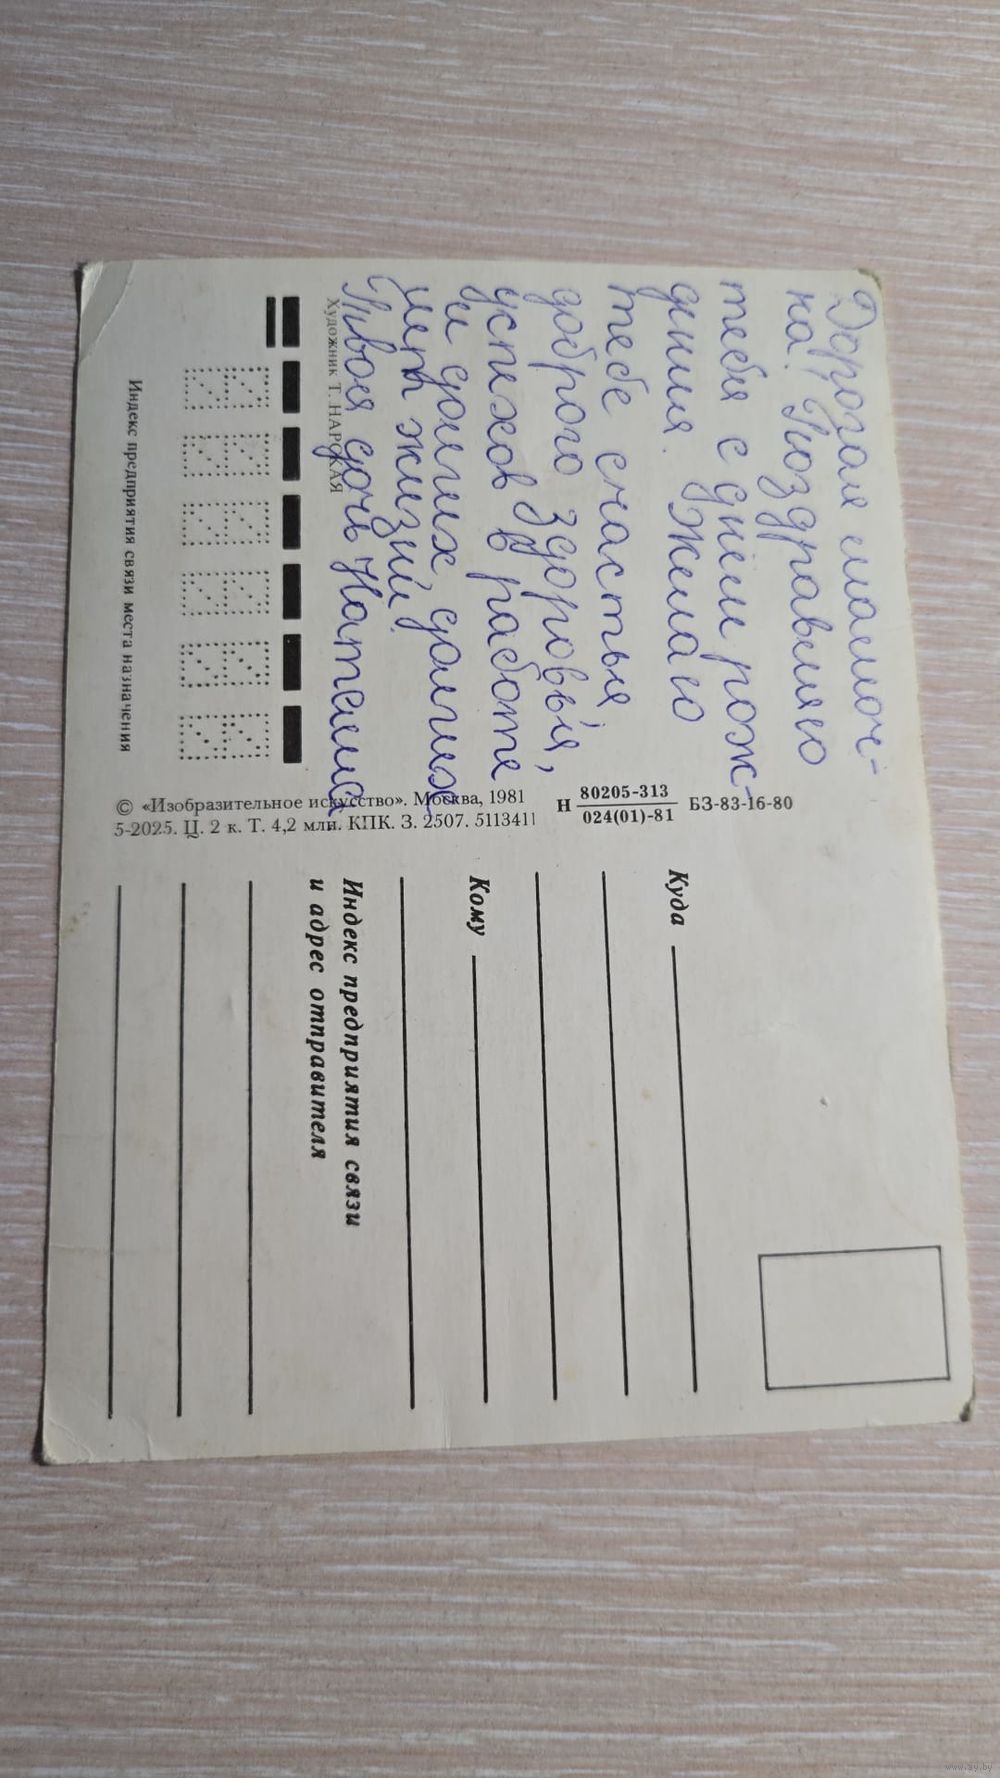 Дорогая мамоч-
ка! Поздравляю
тебя с днем рож-
дния. Желаю
тебе счастья
доброго здоровья,
успехов в работе
и долгих долгих
лет жизни.
Твоя дочь Наташа
Художник Т. НАРСКАЯ
Индекс предприятия связи места назначения
© «Изобразительное искусство». Москва, 1981
5-2025. Ц. 2 к. Т. 4,2 млн. КПК. З. 2507. 511341
Н 80205-313 БЗ-83-16-80
024(01)-81
Куда
Кому
Индекс предприятия связи
и адрес отправителя
www.ay.by